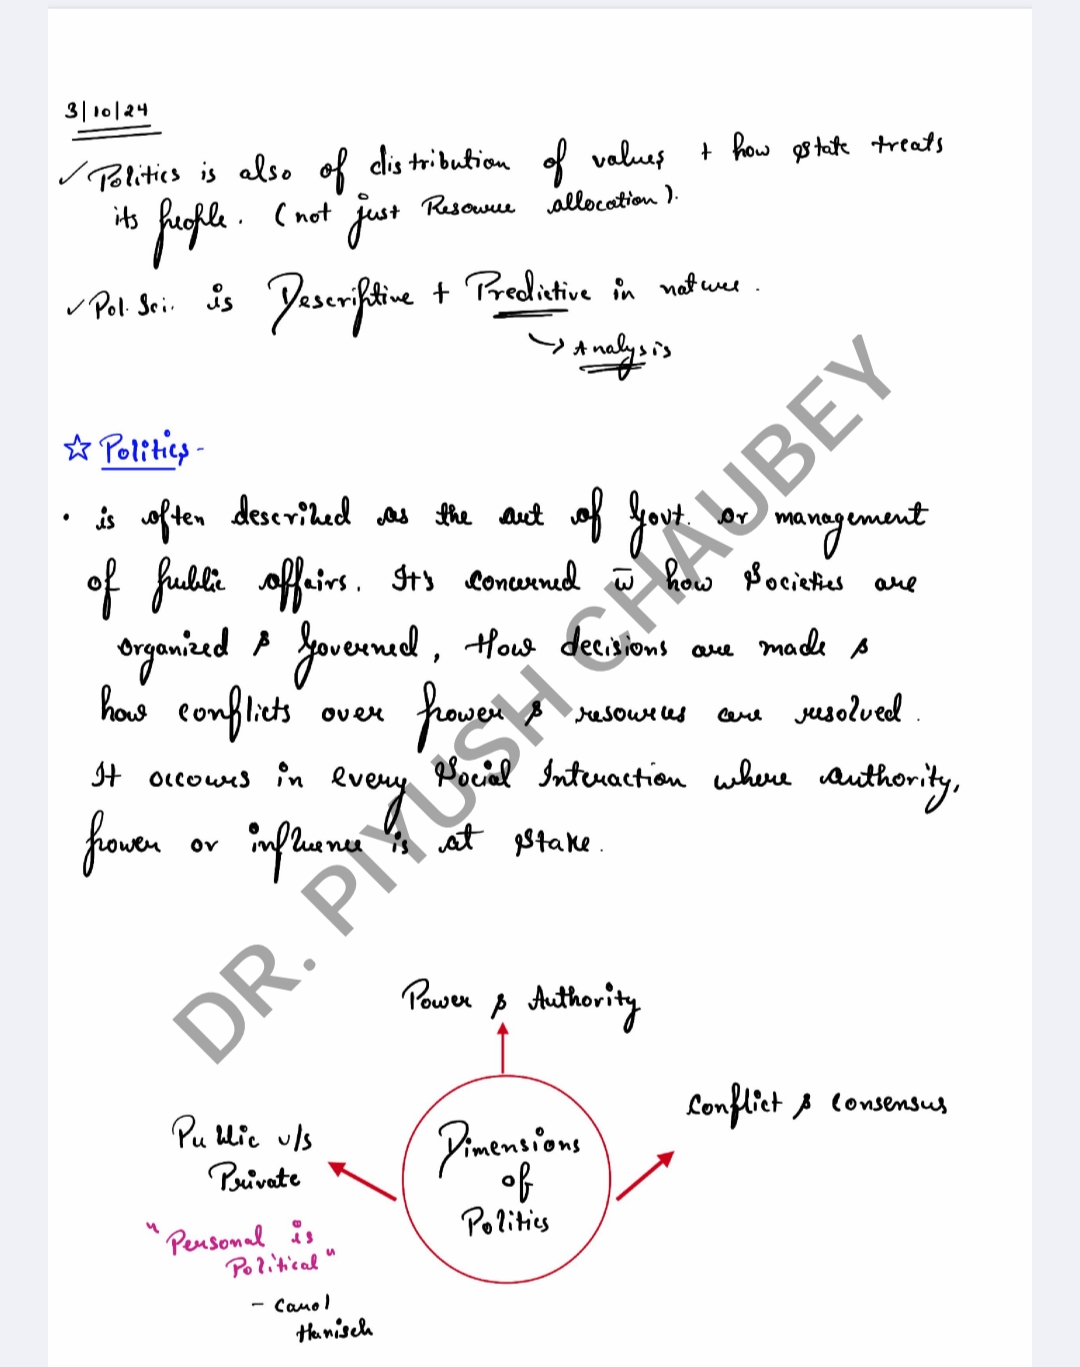 3/10/24
✓ Politics is also of distribution of values + how state treats
its people. (not just Resource allocation).
✓ Pol. Sci. is Descriptive + Predictive in nature.
→ Analysis
☆ Politics -
• is often described as the art of Govt. or management
of public affairs. It's concerned w̅ how Societies are
organized & Governed, How decisions are made &
how conflicts over power & resources are resolved.
It occours in every Social Interaction where authority,
power or influence is at stake.
DR. PIYUSH CHAUBEY
Power & Authority
Conflict & Consensus
Public v/s
Private
Dimensions
of
Politics
"Personal is
Political"
- Carol
Hanisch